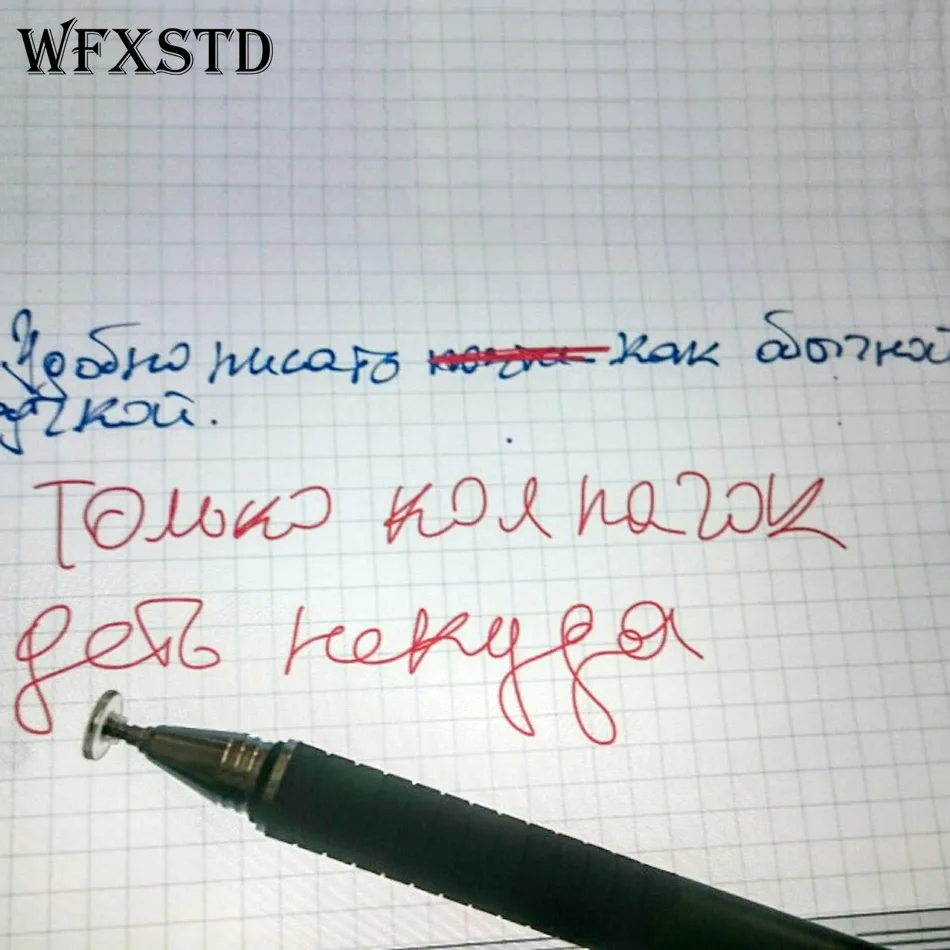 WFXSTD
Удобно писать как обычной
ручкой.
только колпачок
деть некуда